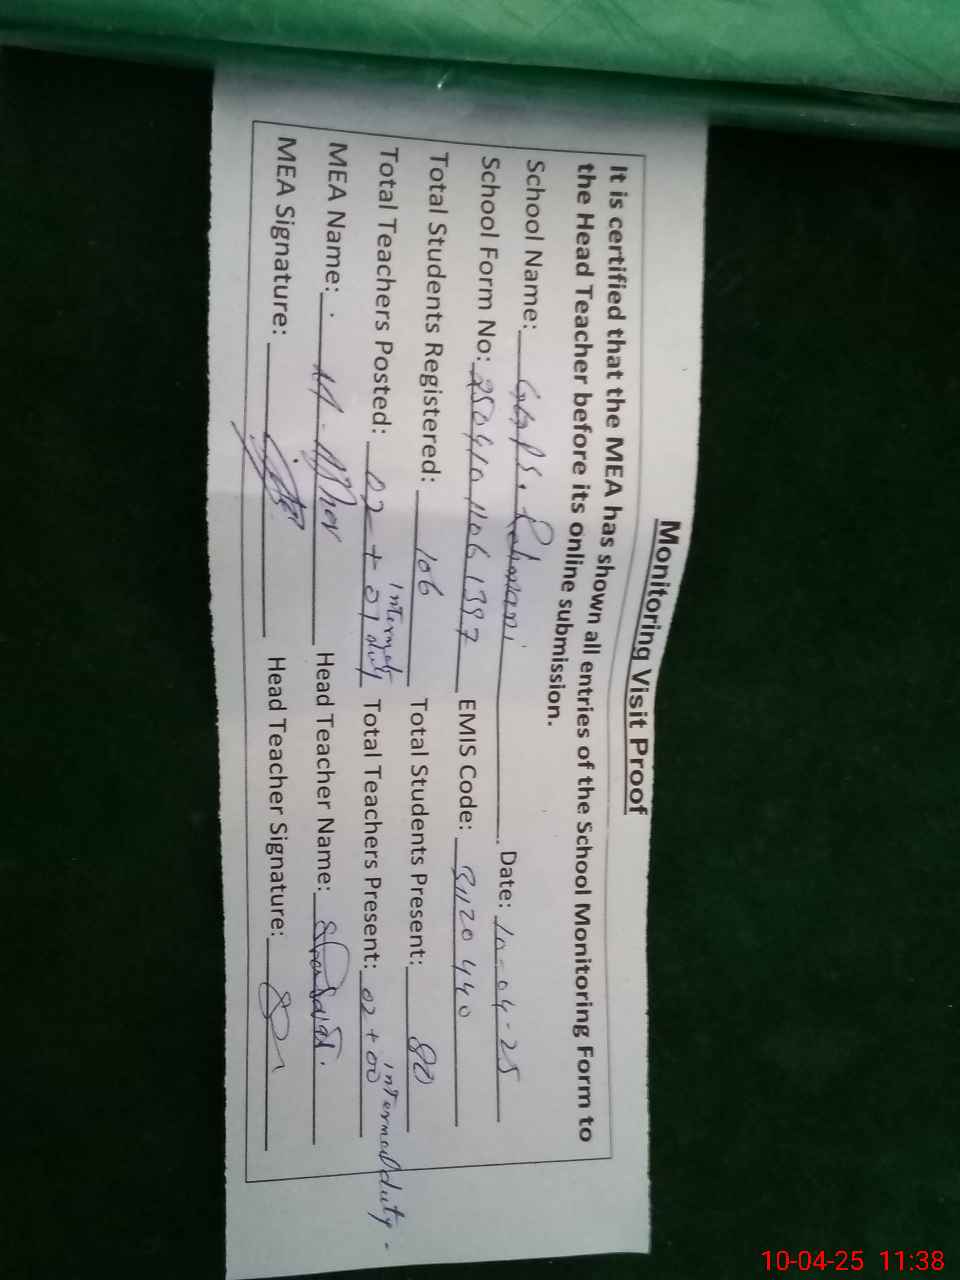 Monitoring Visit Proof
It is certified that the MEA has shown all entries of the School Monitoring Form to
the Head Teacher before its online submission.
School Name: Rehmani Date: 10-04-25
School Form No: 250410 1106 1397 EMIS Code: 31120 440
Total Students Registered: 106 Total Students Present: 80
Total Teachers Posted: 02 + 01 duty Total Teachers Present: 02 + 00 duty -
MEA Name: Head Teacher Name:
MEA Signature: Head Teacher Signature:
10-04-25 11:38